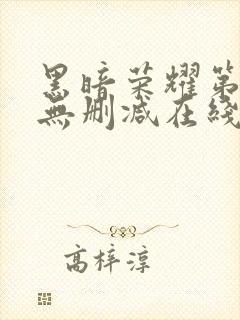 黑暗荣耀第
無删减在綫
高梓淳